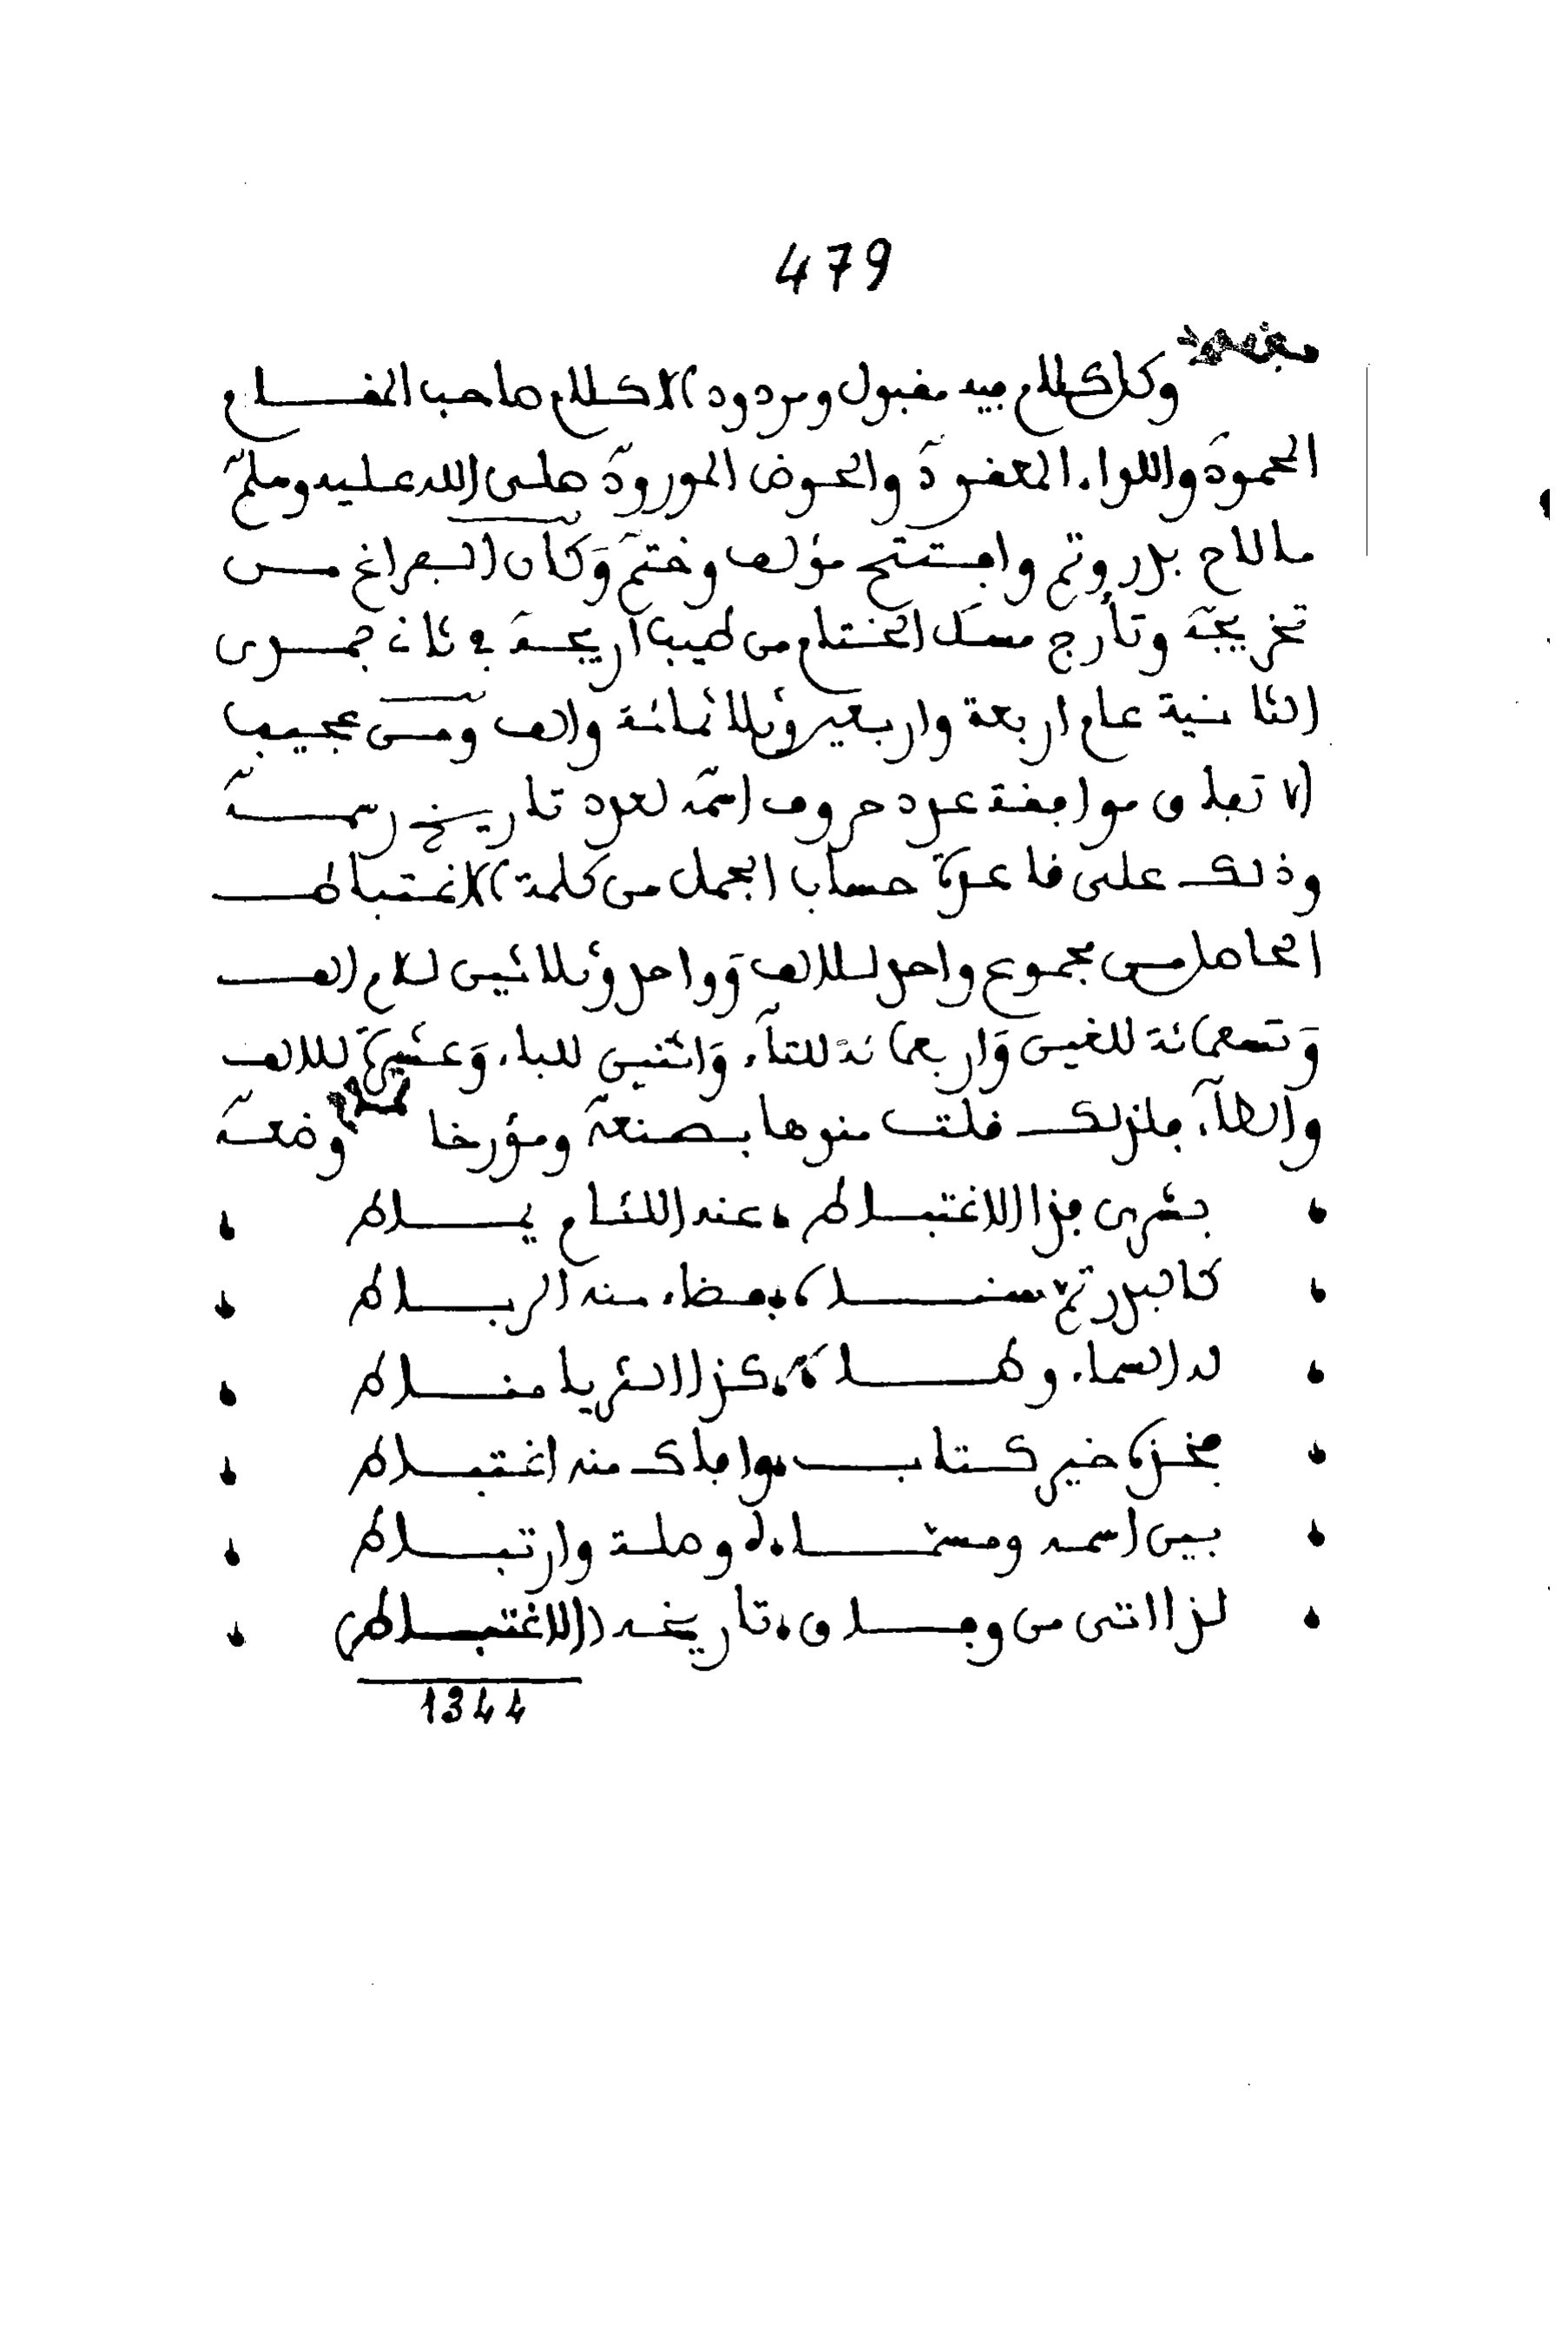 479
وكل كلام فيه مقبول ومردود إلا كلام صاحب المقـــام
المحمود واللواء المعقود والحوض المورود صلى الله عليه وسلم
ما لاح بدر وتم وافتتح مؤلف وختم وَكان الفراغ مـن
تخريجه وتأرج مسك الختام من طيب أريجه في ثان جمدى
الثانية عام اربعة واربعين وثلاثمائة والف ومن عجيب
الاتفاق موافقة عدد حروف اسمه لعدد تاريخ رسمـه
وذلك على قاعدة حساب الجمل من كلمة الاغتباط
الحاصل من مجموع واحد للالف وَواحد وثلاثين للام الف
وَتسعمائة للغين وَاربعمائة للتاء وَاثنين للباء وَعشرة للالف
والطاء فلذلك قلت منوها بصنعه ومؤرخا وضعه
بشرى فذا الاغتبـاط ، عند اللثام يمـــاط
كالبدر تم سنـــاه ، بفضاء منه الربـــاط
له السماء وطـــاء ، كذا الثريا منـــاط
فخذه خير كتاب ، وافاك منه اغتبـاط
بين اسمه ومسمـــاه ، وصلة وارتبـاط
لذا اتى من وفـــاق ، تاريخه ((الاغتبـاط))
1344